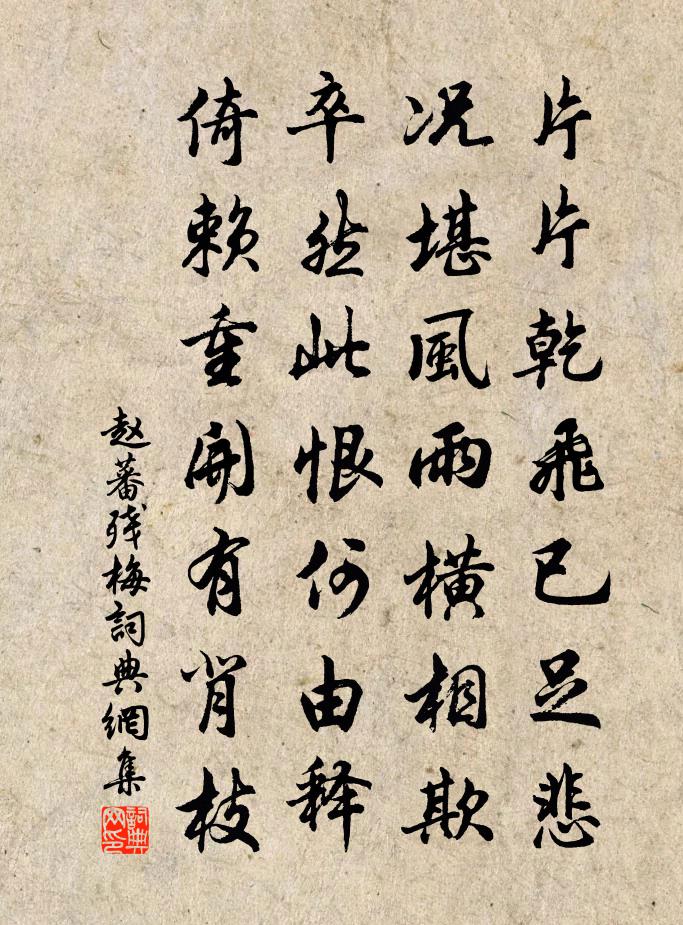 片片乾飛已足悲
况堪風雨横相欺
卒然此恨何由释
倚赖重開有肯枝
赵蕃残梅詞典網集
詞典網印